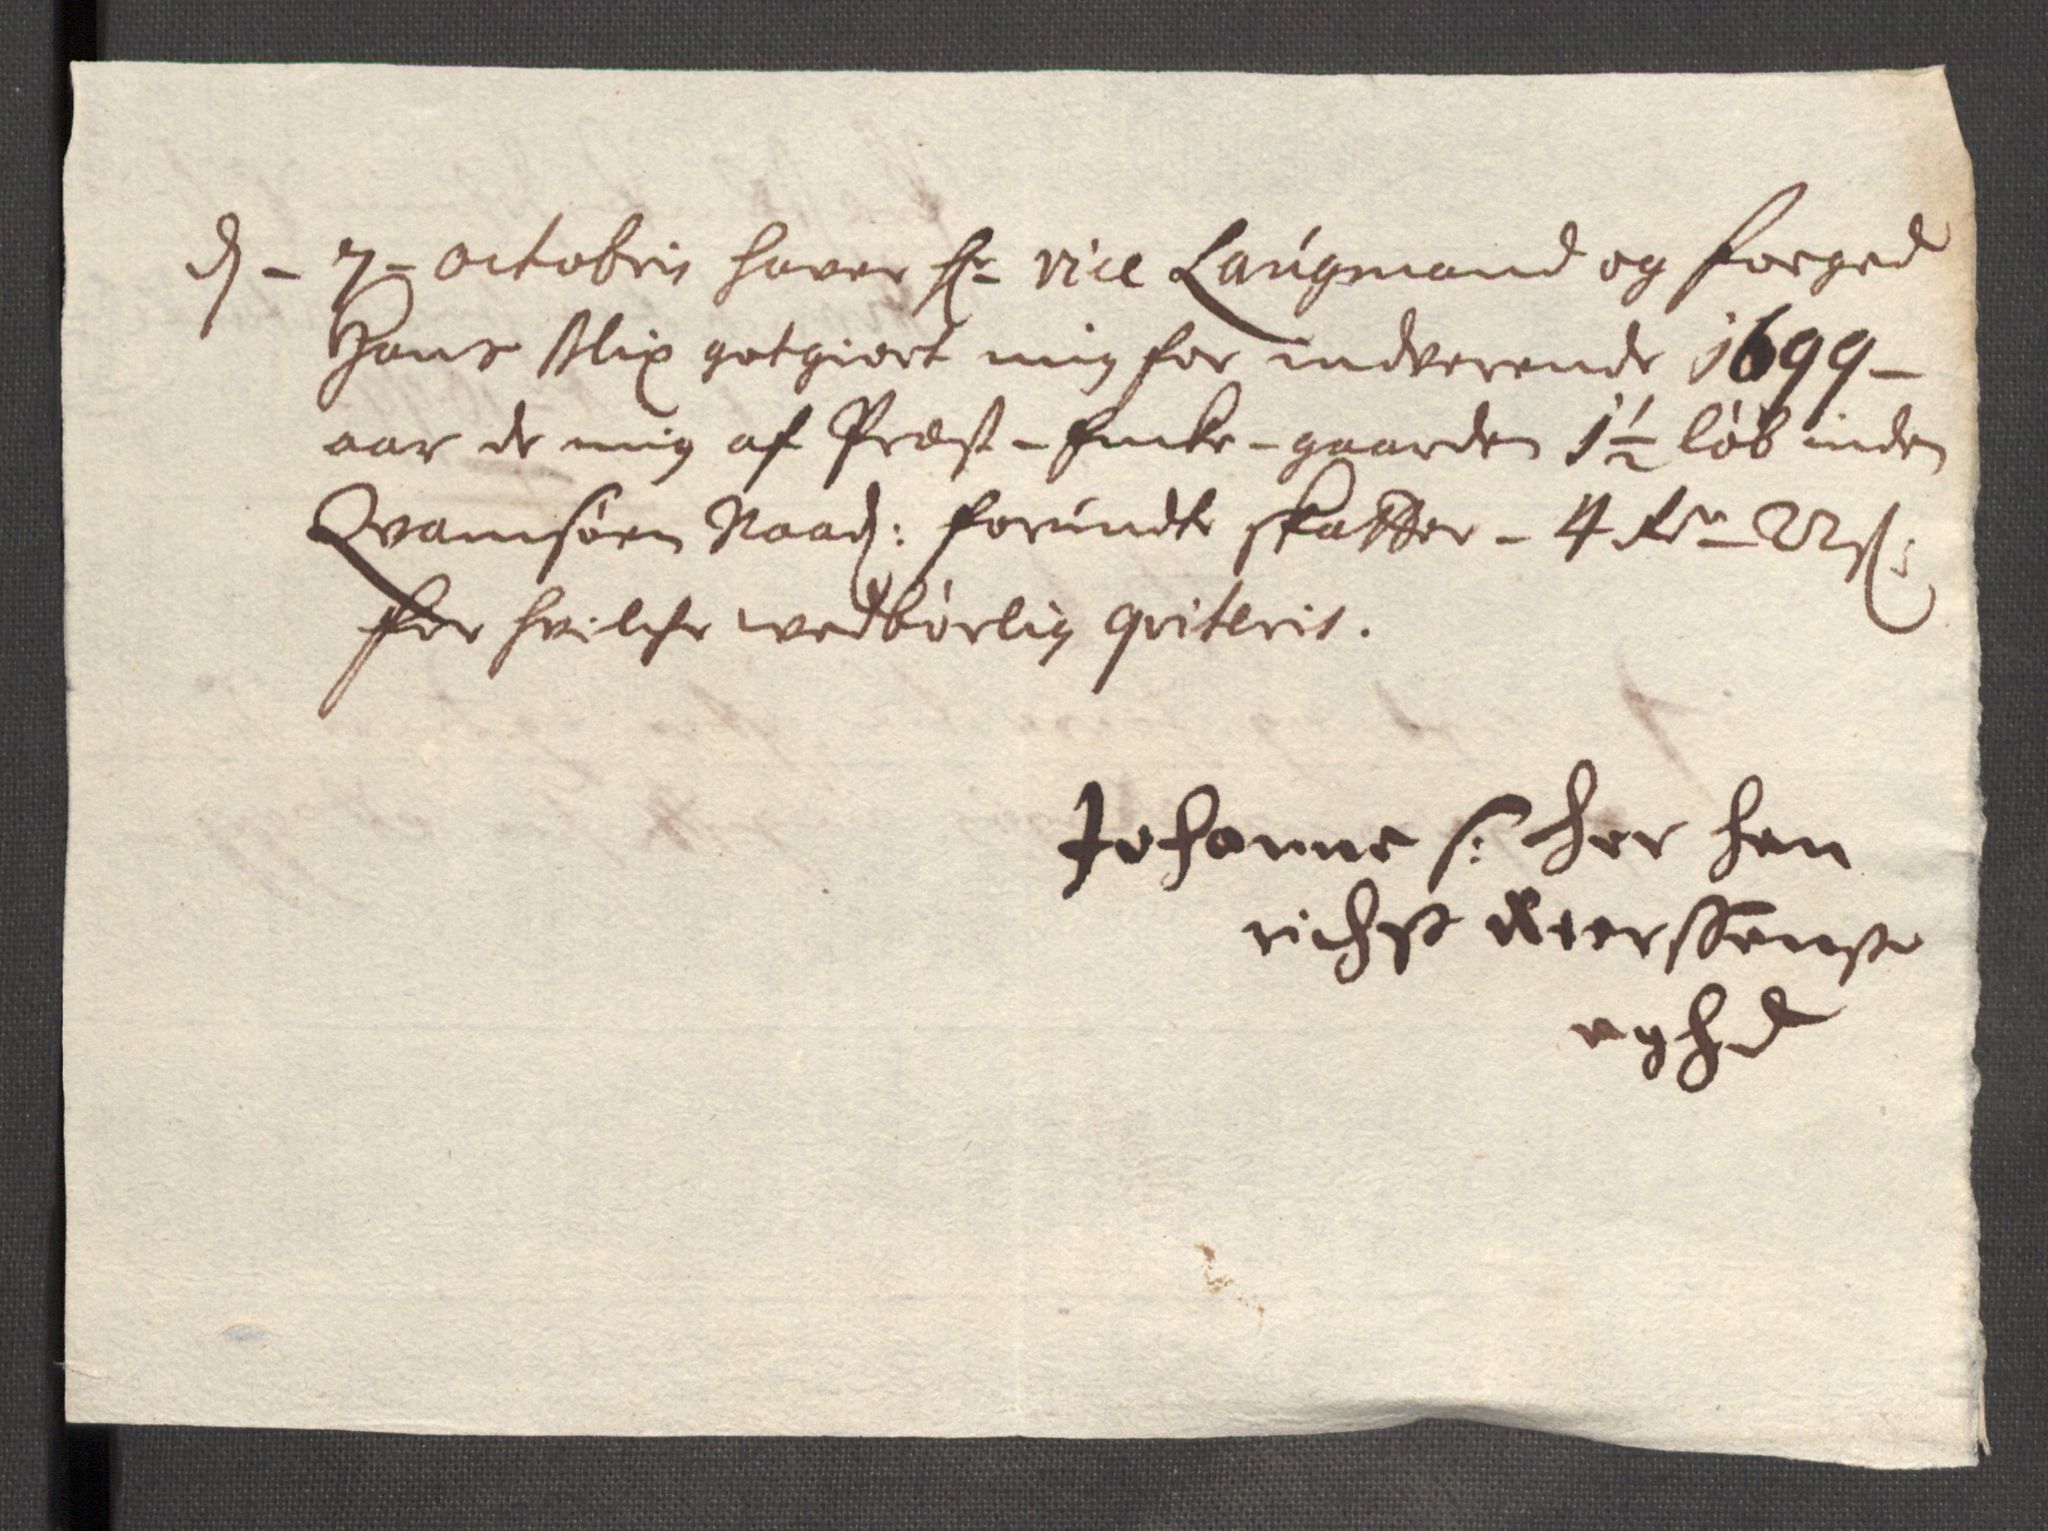 d - 7 - octobris hafver hr vice Laugmand og foeged
Hans Blix gotgiort mig for indverende 1699 -
aar de mig af Præst - Encke - gaarden 1½ løb inden
Qvamsøen Naad: forundte skatter - 4 Rdr - 22 ß:
for hvilche vedbørlig qviteris.
Johanne s: her hen
richß
eghd